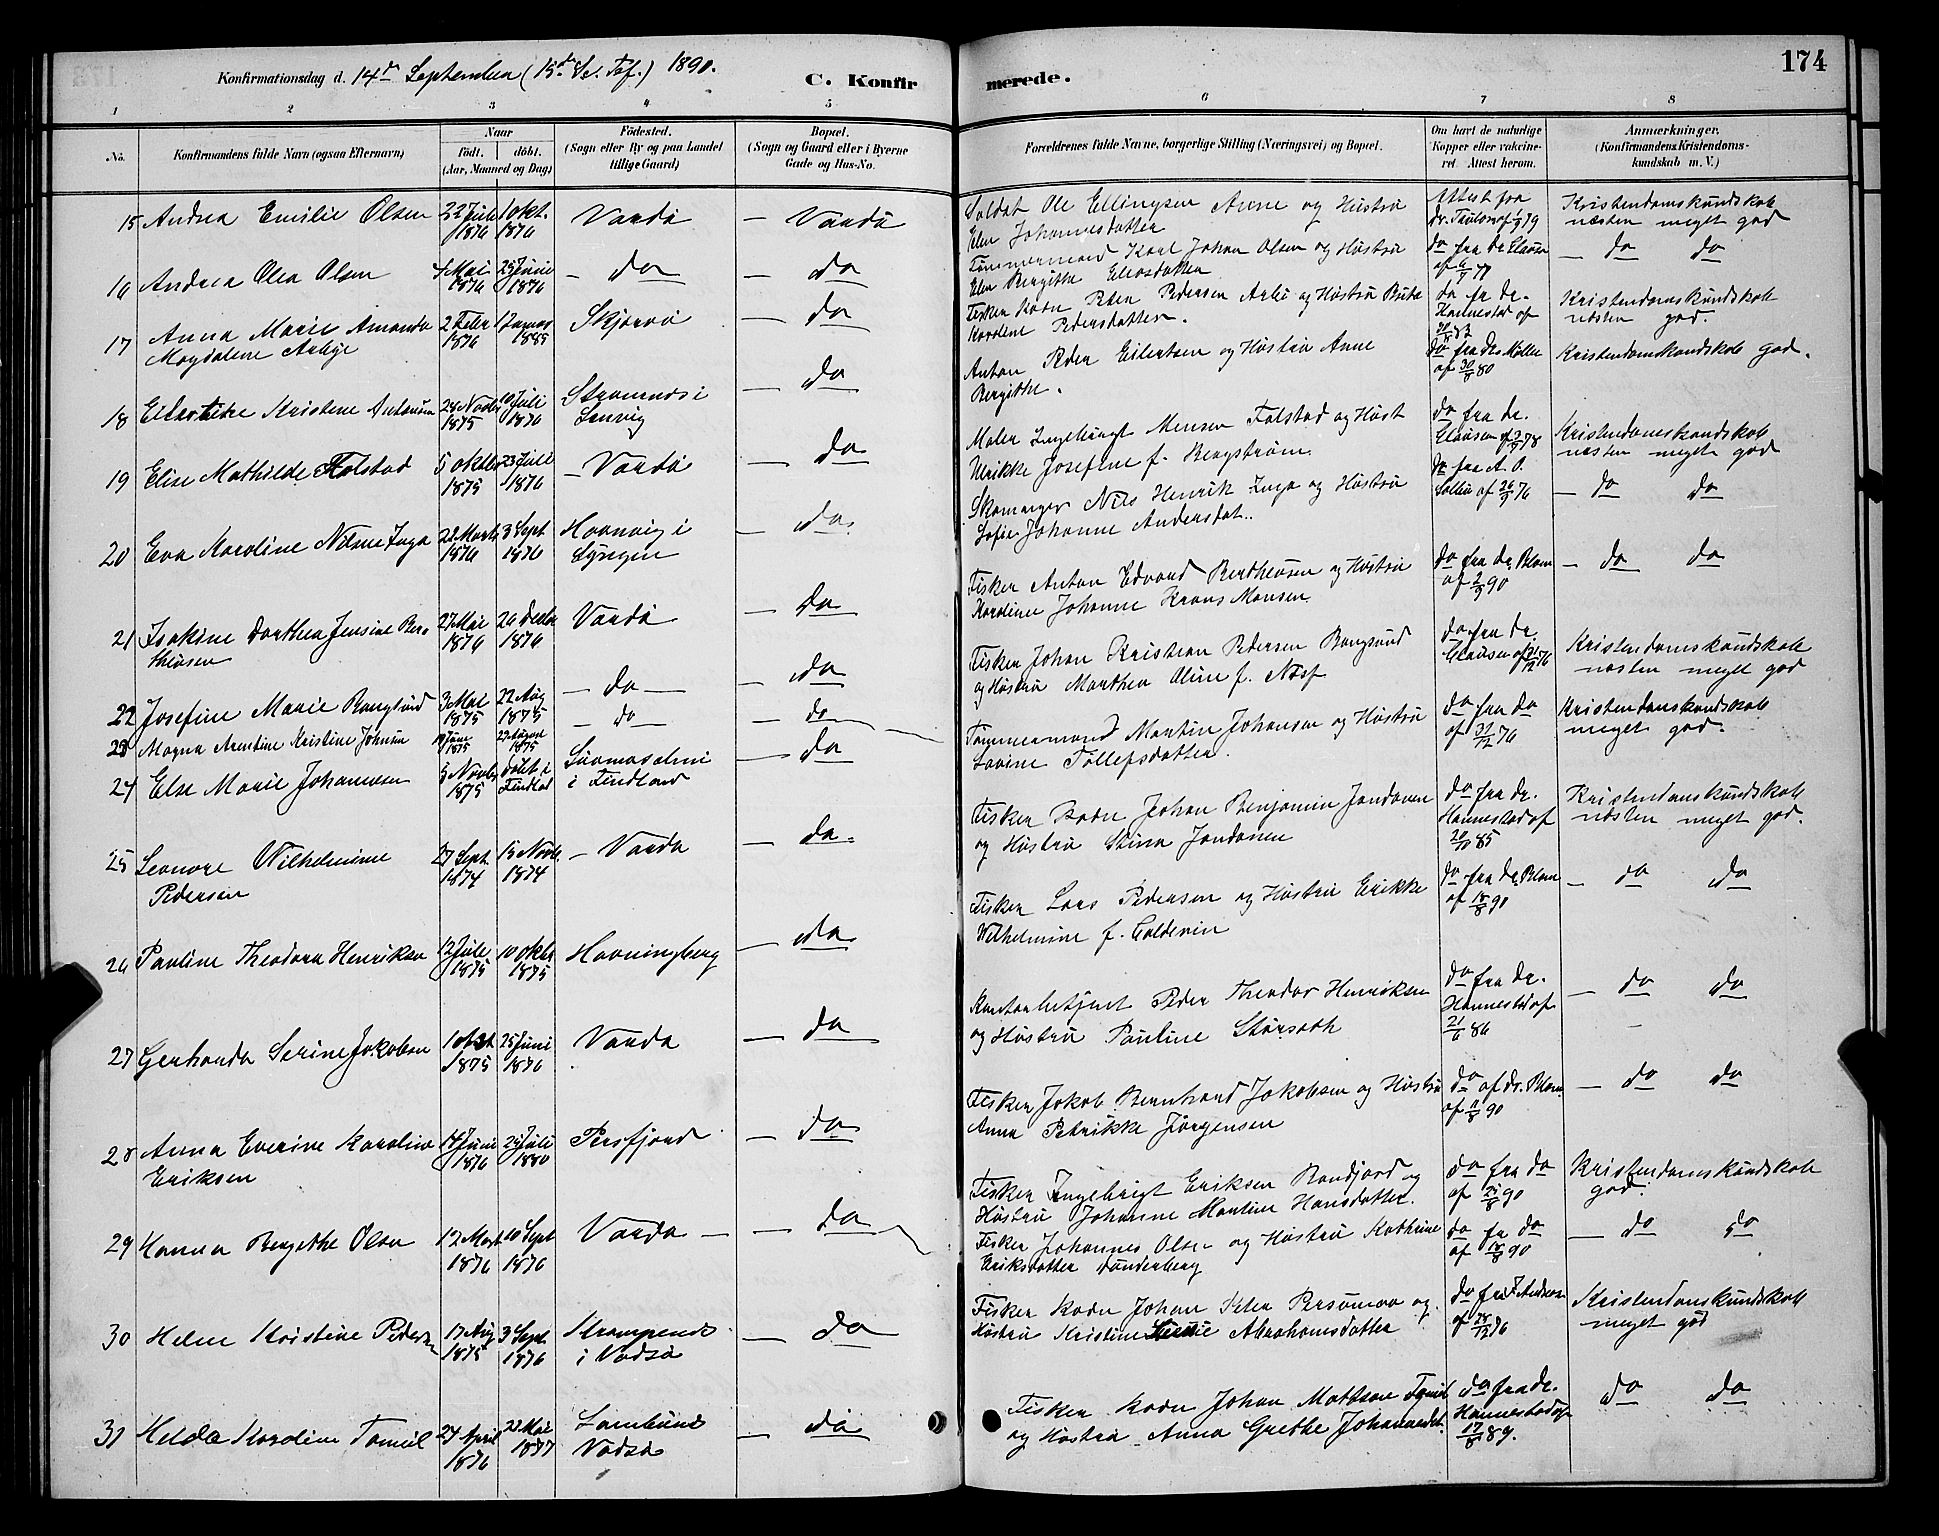 174
Konfirmationsdag d. 14de September (15de S. e. Tref.) 1890.
C. Konfirmerede.
1 2 3 4 5 6 7 8
No.
Konfirmandens fulde Navn (ogsaa Efternavn)
Naar
födt. döbt.
(Aar, Maaned og Dag)
Födested.
(Sogn eller By og paa Landet
tillige Gaard)
Bopæl.
(Sogn og Gaard eller i Byerne
Gade og Hus-No.
Forældrenes fulde Navne, borgerlige Stilling (Næringsvei) og Bopæl.
Om havt de naturlige
Kopper eller vaccine-
ret. Attest herom.
Anmærkninger.
(Konfirmandens Kristendoms-
kundskab m. V.)
15 Andrea Emilie Olsen 22 Juli 1876 1 Okt. 1876 Vardö — Vardö
Soldat Ole Ellingsen Arne og Hustru
Elen Johannesdatter
Attest fra
dr.
Kristendomskundskab
næsten meget god
16 Andrea Olea Olsen 4 Mai 1876 25 Juni 1876 — do — do
Tömmermand Karl Johan Olsen og Hustru
Elen Bergithe Eliasdatter
do fra dr Clausen
— do do
17 Anna Marie Amanda
Magdalene
2 Febr 1876 1 Januar 1885 Skjervö — do
Fisker Kvæn Peder Pedersen og Hustru Brita
Karoline Pedersdatter.
do fra dr.
Hannestad af
Kristendomskundskab
næsten god.
18 Kristine Antonsen 24 Novbr 1875 10 Juli 1876
Lenvig
— do
Anton Peder Eilertsen og Hustru Anne
Bergithe.
do fra dr Möller
af 30/8 80
Kristendomskundskab god.
19 Elise Mathilde Folstad 5 Oktbr 1875 23 Juli 1876 — Vardö — do
Maler Ingebrigt Monsen Folstad og Hust
Ulrikke Josefine f. Bergström
do fra dr.
Clausen af 78
Kristendomskundskab
næsten meget god
20 Eva Karoline Nilsine Inga 22 Marts 1876 3 Sept 1876
Lyngen
— do.
Skomager Nils Henrik Inga og Hustru
Sofie Johanne Andersdat..
do fra A. O.
af 26/9 76
— do do
21 Isakine Dorthea Jensine Ber-
theusen
27 Mai 1876 26 Decbr 1876 Vardö — do
Fisker Anton Edvard Bertheusen og Hustru
Karoline Johanne Krans Monsen
do fra dr. Blom
af 2/9 90
— do do
22 Josefine Marie Bangsund 3 Mai 1875 22 Aug 1875 — do — — do
Fisker Johan Kristian Pedersen Bangsund
og Hustru Marthea Oline f. Næss
do fra dr.
Clausen af 31/12 76
Kristendomskundskab
næsten meget god
23 Magna Arentine Kristine Johnsen 1875 1875 — do — — do
Tömmermand Martin Johansen og Hustru
Lovine Tollefsdatter
do fra do
af 31/12 76
Kristendomskundskab
meget god.
24 Else Marie Johannesen 5 Novbr 1875 döbt i Findland
Suomusalmi
i Findland
— do
Fisker Kvæn Johan Benjamin Jondonen
og Hustru Stina Jondonen
do fra dr.
Hannestad af
20/10 85
Kristendomskundskab
næsten meget god.
25 Leonore Wilhelmine
Pedersen
27 Sept. 1874 15 Novbr. 1874 — Vardö — do.
Fisker Lars Pedersen og Hustru Erikke
Wilhelmine f. Coldevin
do fra dr. Blom
af 18/8 90
— do do
26 Pauline Theodora Henriksen 12 Juli 1875 10 Oktbr 1875 Havningberg — do
Kontorbetjent Peder Theodor Henriksen
og Hustru Pauline
do fra dr.
Hannestad af
21/6 86
— do do
27 Gerharda Serine Jakobsen 1875 25 Juni 1876 Vardö — do
Fisker Jakob Bernhard Jakobsen og Hustru
Anna Petrikke Jörgensen
do af dr. Blom
af 11/8 90
— do do
28 Anna Everine Karoline
Eriksen
14 Juni 1876 24 Juli 1880 Persfjord — do
Fisker Ingebrigt Eriksen og
Hustru Johanne Martine Hansdatter.
do fra do
af 21/8 90
Kristendomskundskab
god.
29 Hanna Bergethe Olsen 12 Mart 1876 10 Sept 1876 Vardö — — do
Fisker Johannes Olsen og Hustru Kathrine
Eriksdatter Dunderberg
do fr do
af 18/8 90
— do do
30 Helene Kristine Pedersen 17 Aug 1875 3 Sept 1876
i Vadsö
— do
Fisker Kvæn Johan Peter og
Hustru Kristine Abrahamsdatter
do fra
af 28/12 76
Kristendomskundskab
meget god
31 Hilda Karoline 24 April 1876 22 Mai 1877
Vadsö
— do
Fisker Kvæn Johan Mattson
og Hustru Anna Grethe Johannesdt.
do fra dr.
Hannestad af
17/8 89.
do do